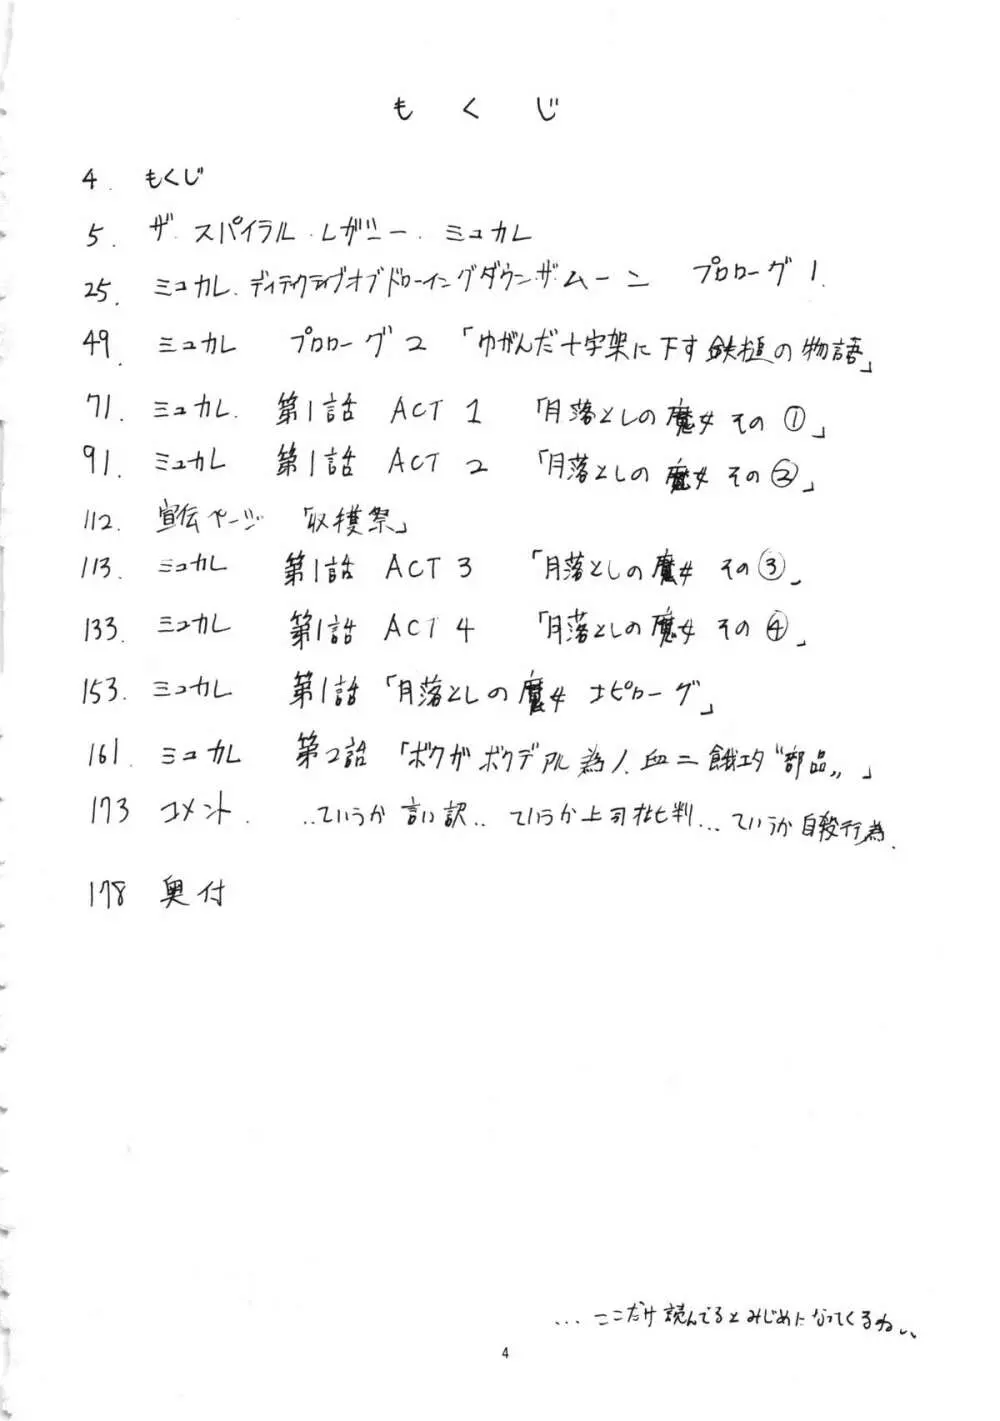 もくじ
4. もくじ
5. ザ・スパイラル・レガシー・ミュカレ
25. ミュカレ・ディテクティブオブドローイングダウン・ザ・ムーン プロローグ1
49. ミュカレ プロローグ2 「ゆがんだ十字架に下す鉄槌の物語」
71. ミュカレ. 第1話 ACT 1 「月落としの魔女 その①」
91. ミュカレ 第1話 ACT 2 「月落としの魔女 その②」
112. 宣伝ページ 「収穫祭」
113. ミュカレ 第1話 ACT 3 「月落としの魔女 その③」
133. ミュカレ 第1話 ACT 4 「月落としの魔女 その④」
153. ミュカレ 第1話「月落としの魔女 エピローグ」
161. ミュカレ 第2話 「ボクガボクデアル為ノ、血ニ餓エタ“部品„」
173 コメント. ..ていうか言い訳.. ていうか上司批判... ていうか自殺行為.
178 奥付
... ここだけ読んでるとみじめになってくるね..
4